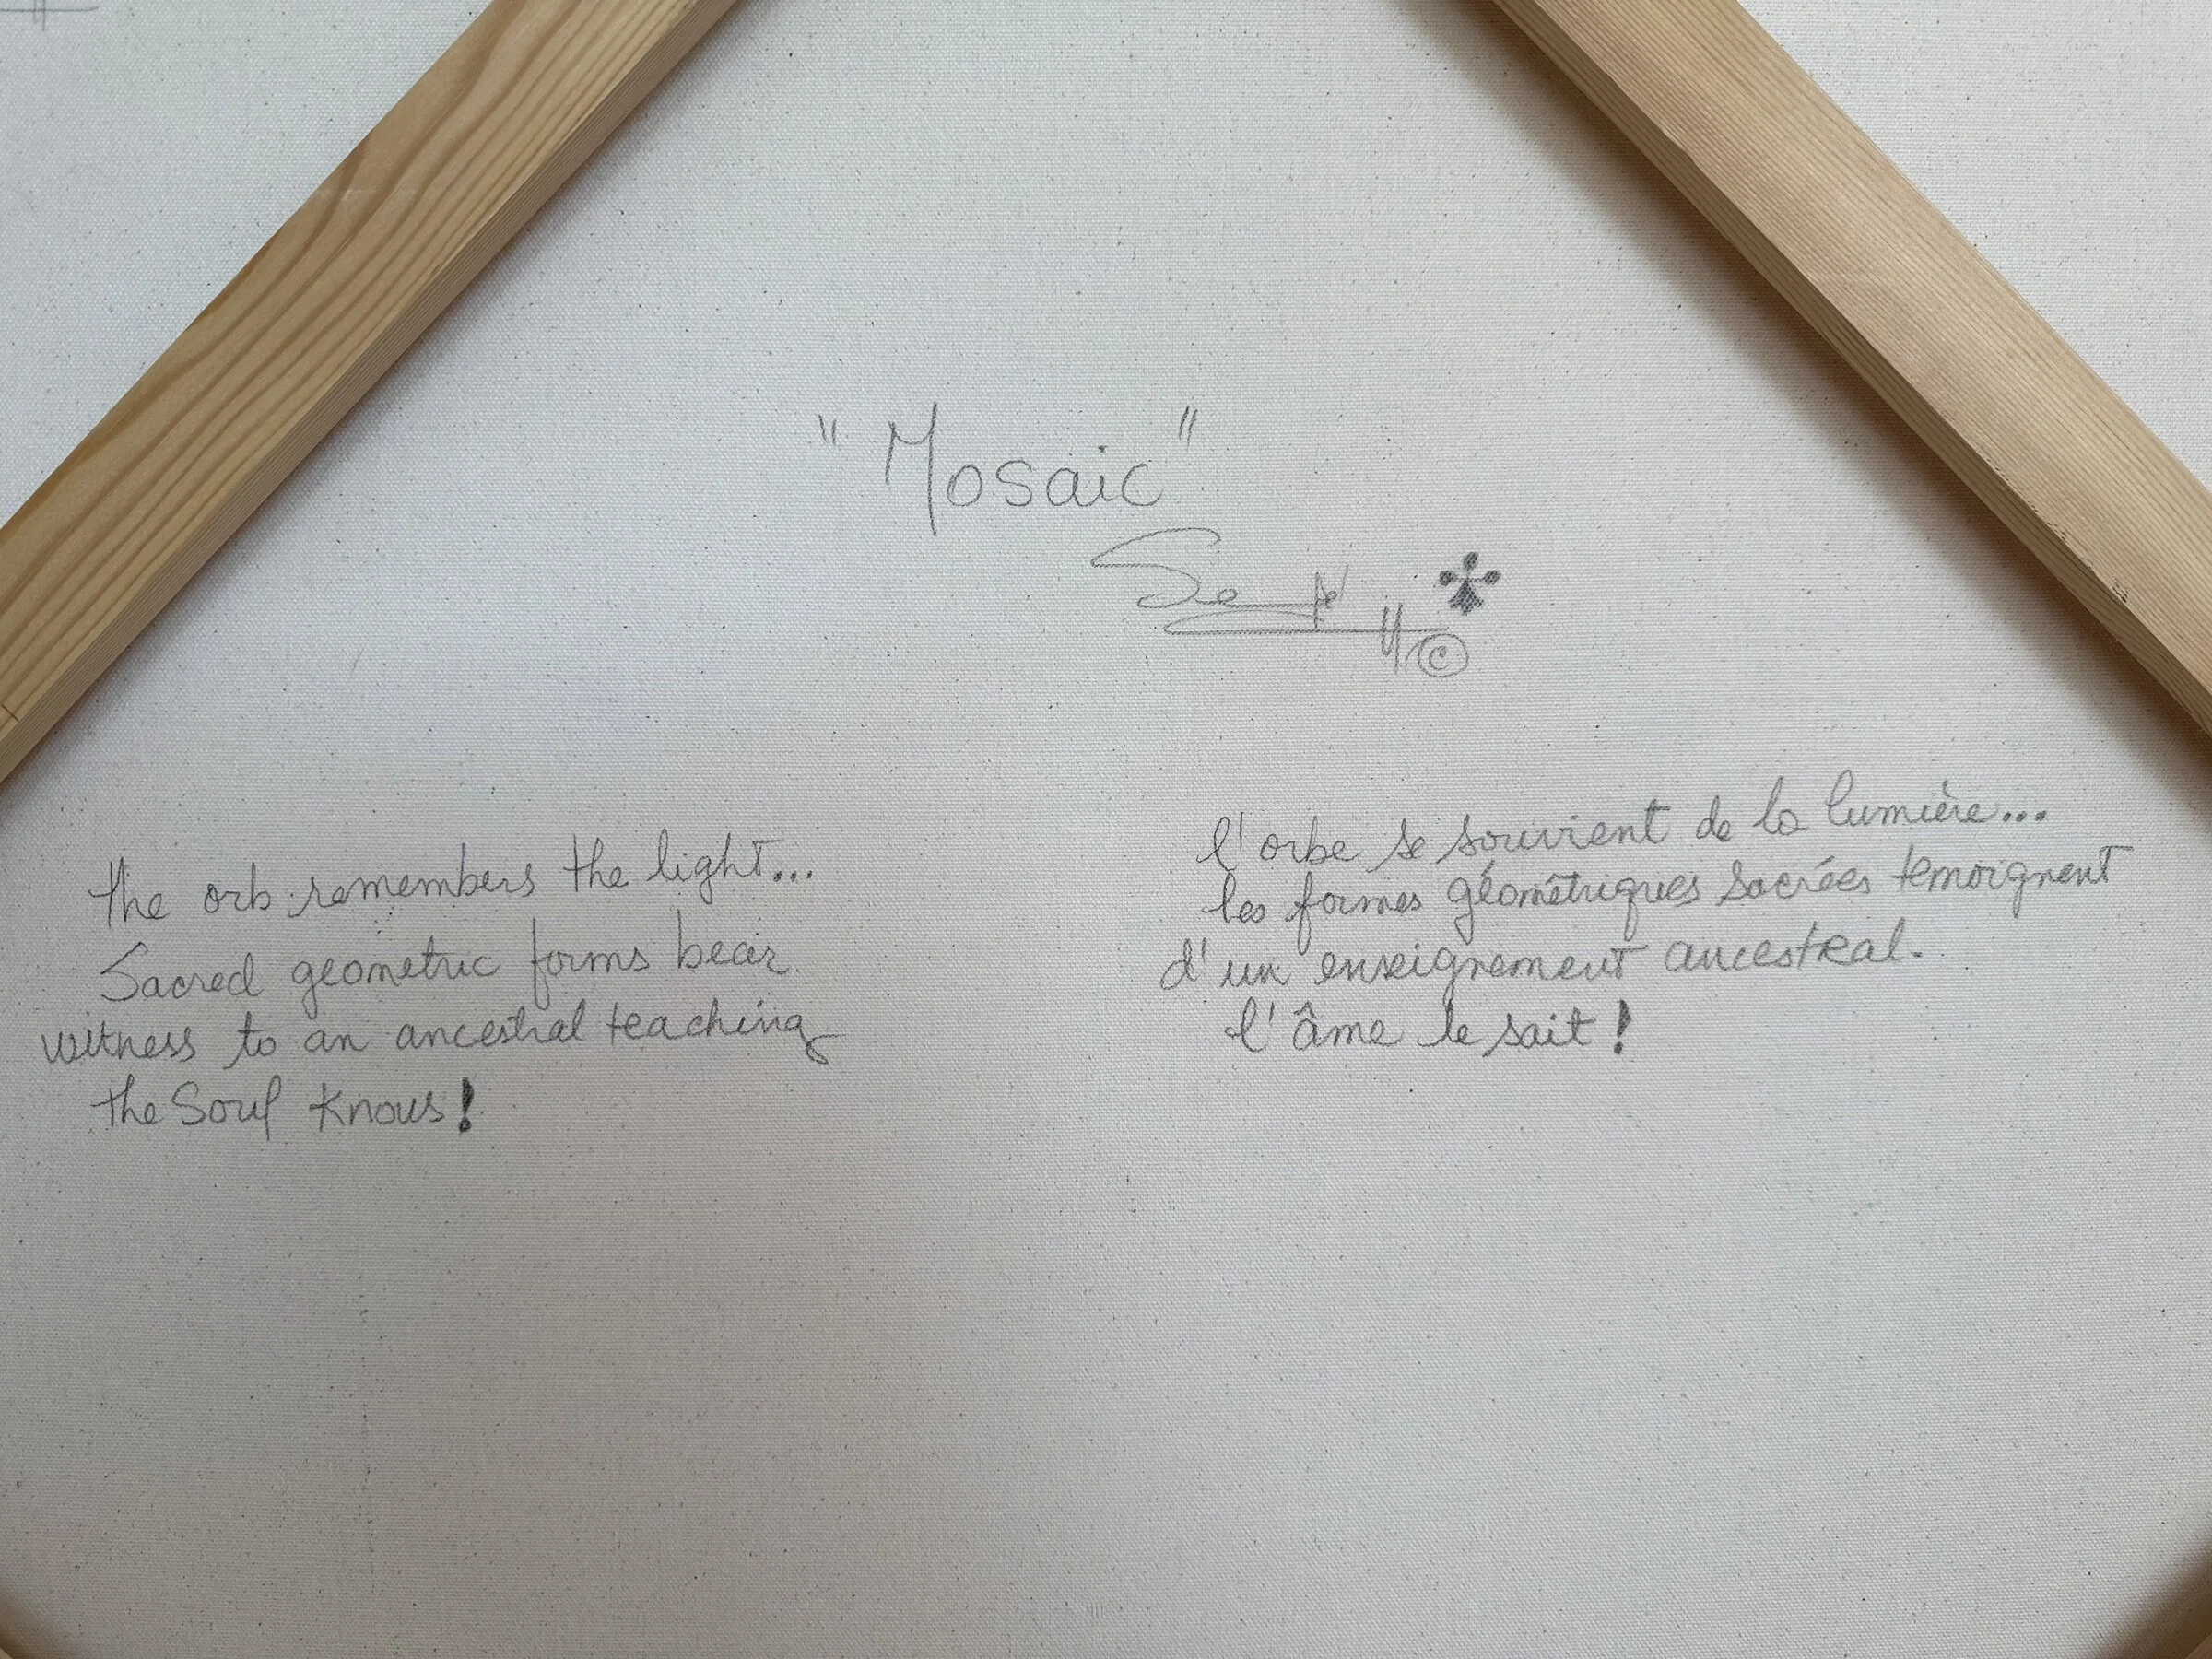 "Mosaic"
©
the orb remembers the light...
Sacred geometric forms bear
witness to an ancestral teaching
the Soul knows!
l'orbe se souvient de la lumière...
les formes géométriques sacrées temoignent
d'un enseignement ancestral.
l'âme le sait!